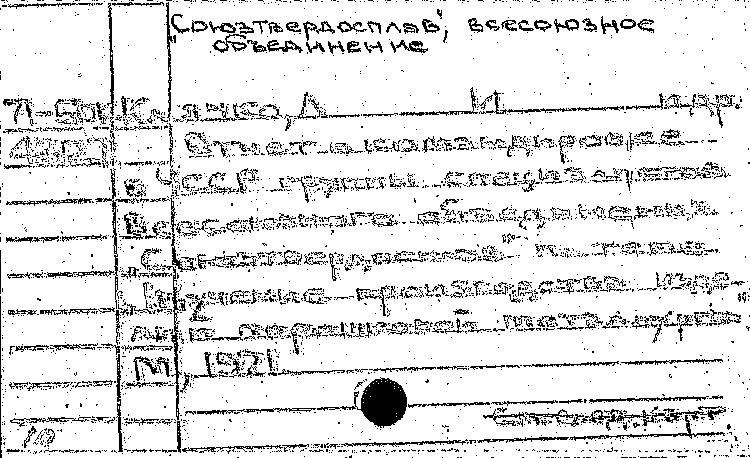 "Союзтвердосплав", всесоюзное
объединение
Клячко, Л И и др.
Отчет о командировке
в ЧССР группы специалистов
Всесоюзного объединения
"Союзтвердосплав" по теме
"Изучение производства изде-
лий порошковой металлург
М, 1971